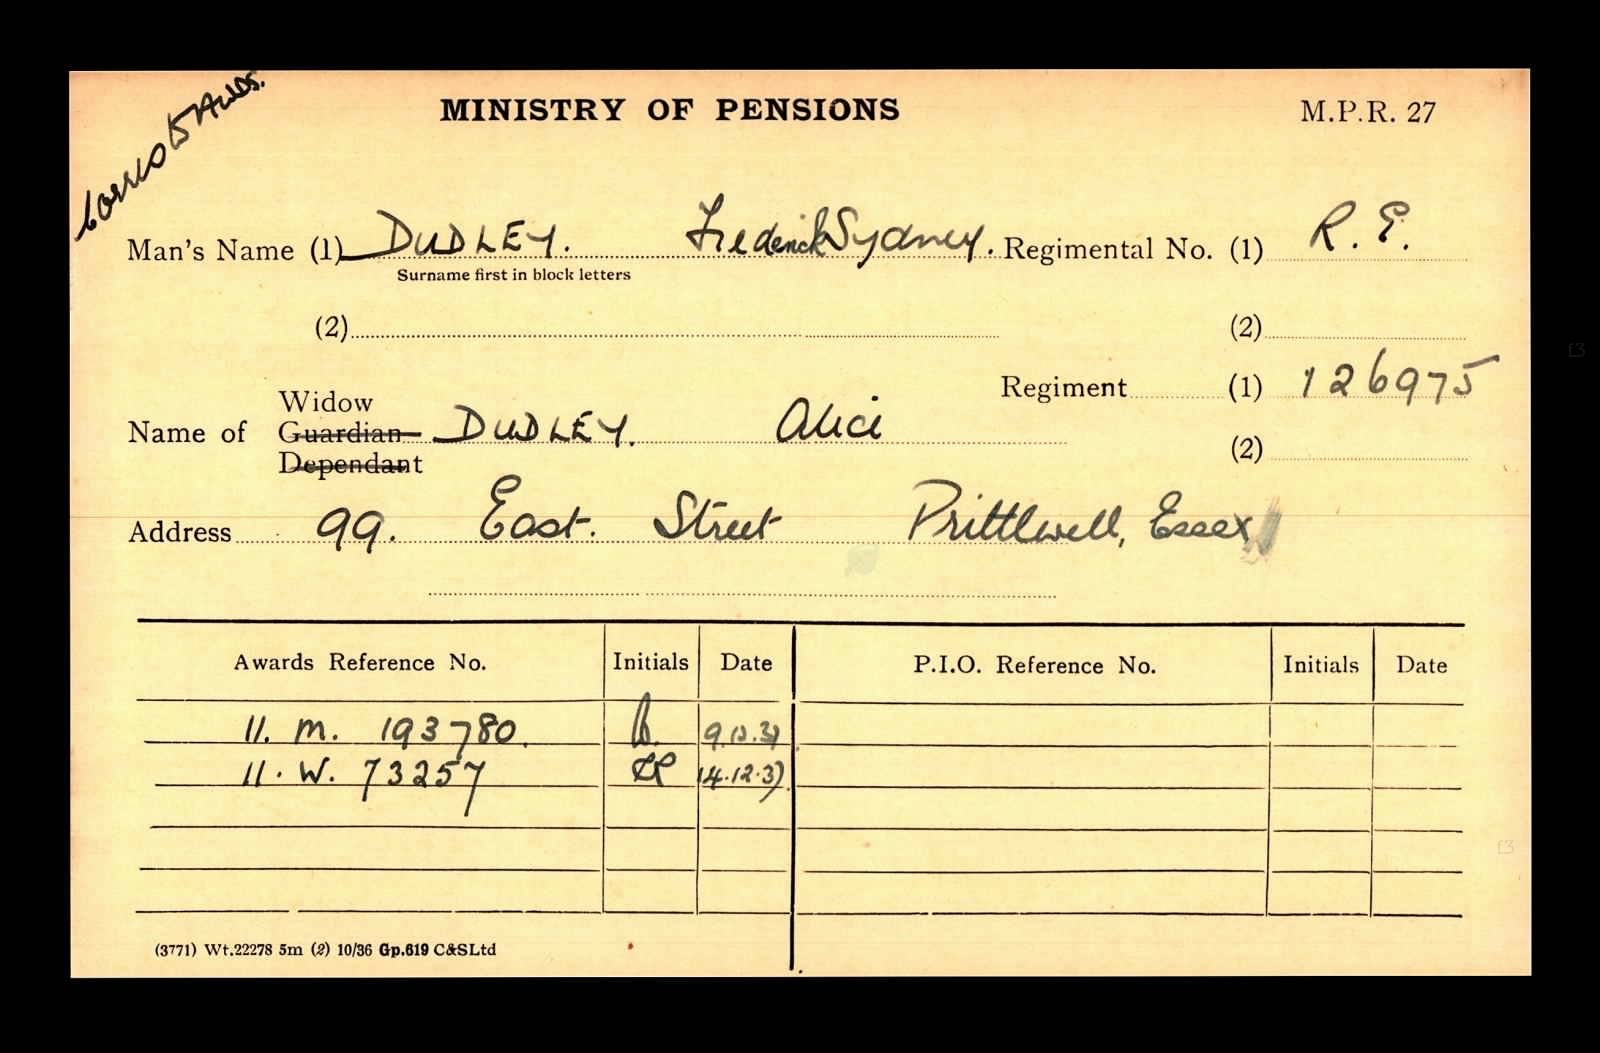 Corres to Awds.
MINISTRY OF PENSIONS M.P.R. 27
Man's Name (1) DUDLEY. Frederick Sydney. Regimental No. (1) R. E.
Surname first in block letters
(2) (2)
Regiment (1) 126975
Widow
Name of Guardian DUDLEY. Alice
Dependant (2)
Address 99. East. Street Prittlwell, Essex
Awards Reference No. Initials Date P.I.O. Reference No. Initials Date
11. M. 193780.
11. W. 73257 14.12.37
(3771) Wt.22278 5m (2) 10/36 Gp.619 C&SLtd